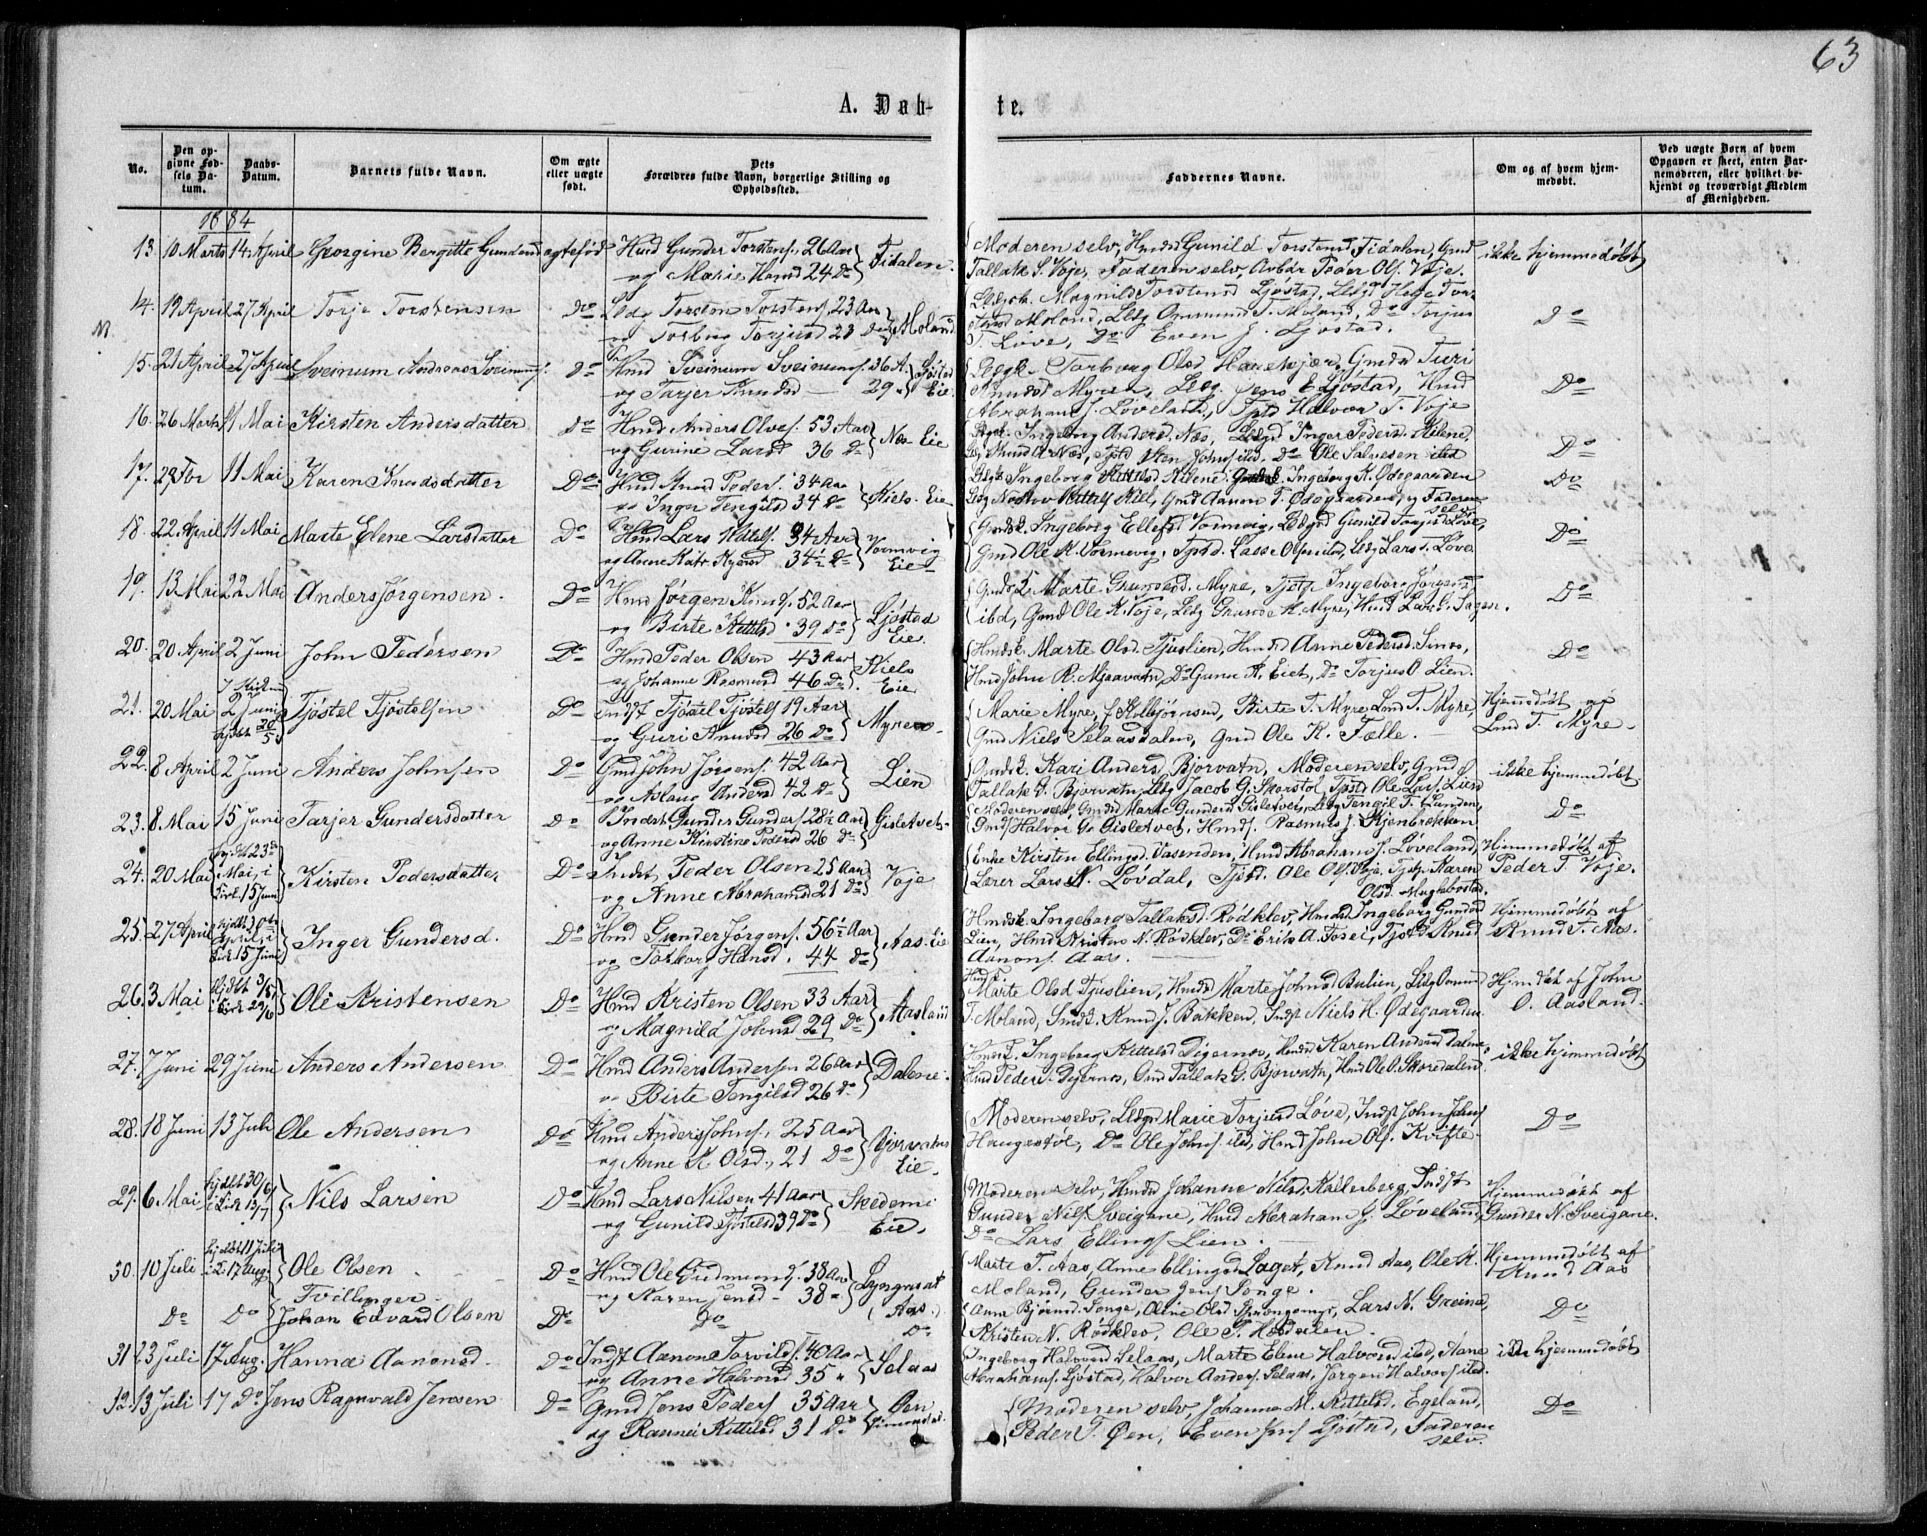 63
A. Døb-
te.
No.
Den op-
givne Fød-
sels Da-
tum.
Daabs-
Datum.
Barnets fulde Navn.
Om ægte
eller uægte
født.
Dets
Forældres fulde Navn, borgerlige Stilling og
Opholdssted.
Faddernes Navne.
Om og af hvem hjem-
medøbt.
Ved uægte Børn af hvem
Opgaven er skeet, enten Bar-
nemoderen, eller hvilket be-
kjendt og troværdigt Medlem
af Menigheden.
1884
13. 10 Marts 14 April Georgine Bergitte Gundersd ægtefød Hmd Gunder Torstens. 26 Aar
og Marie Hansd 24 Do Fidalen.
Moderen selv, Hmds Gunild Torstensd Fidalen, Gmd
Tallak S. Voje, Faderen selv, Arbdr Peder Ols. Voje.
ikke hjemmedøbt
14. 19 April 27 April Torje Torstensen Do Ledg Torsten Torstens. 23 Aar
og Torborg Torjusd 23 Moland.
Magnild Torstensd Ljøstad, Ledg Helge
Moland, Ledg Ommund T. Moland, Do Torjus
T. Løve, Do Even J. Ljøstad.
Do
15. 21 April 27 April Sveinum Andreas Sveinums. Do Hmd Sveinum Sveinums. 36 A.
og Tarjer Knudsd 29 " Ljøstad
Eie.
Torborg Olsd Harekjær, Gmds Turi
Knudsd Myre, Ledg Jens E Ljøstad, Hmd
Abraham J. Løveland, Tjstd Halvor T. Voje
Do
16. 26 Marts 11 Mai Kirsten Andersdatter Do Hmd Anders Olves. 53 Aar
og Gurine Larsd 36 Do Næs Eie
Ingeborg Andersd. Næs, Inger Pedersd. Kilene,
Knud A Næs, Tjstd Sten Johns. ibd, Do Ole Salvesen ibd
Do
17. 27 Fbr 11 Mai Karen Knudsdatter Do Hmd Knud Peders. 34 Aar
og Inger Tengilsd 34 Do Kiels. Eie
Ingeborg Kittilsd Kilene, Ingeborg K. Ødegaarden
Ledg Kittels. Kiil, Gmd Aanon T. Ødegaarden og Faderen
selv.
Do
18. 22 April 11 Mai Marte Elene Larsdatter Do Hmd Lars 34 Aar
og Anne Katr. 34½ Do Vormvig
Eie
Ingeborg Ellefsd Vormvig, Gunild Torjusd Løve,
Gmd Ole K. Vormevig, Tjstd. Lasse Ols. ibd, Ledg Lars T. Løve.
Do
19. 13 Mai 22 Mai Anders Jørgensen. Do Hmd Jørgen Knuds. 52 Aar
og Birte Kittilsd 39 Do Ljøstad
Eie.
Marte Grundesd. Myre, Tjstp. Ingeborg Jørgensd
ibd, Gmd Ole K. Voje, Ledg Grunde K. Myre, Hmd Lars E. Lagen.
Do
20. 20 April 2 Juni John Pedersen Do Hmd Peder Olsen 43 Aar
og Johanne Rasmusd 46 Do Kiels
Eie
Hmdsk. Marte Olsd. Tjuslien, Hmds Anne Pedersd. Simos,
Hmd John R. Mjaavatn, Do Gunn A. Eiet, Do Torjus O Lien.
Do
21. 20 Mai 2 Juni
hjdbt 20/5 Tjøstel Tjøstelsen Do Indst Tjøstel Tjøstels. 19 Aar
og Guri Knudsd 26 Do Myre
Marie Myre, f Kolbjørnsd, Birte T. Myre, Lind T. Myre,
Gmd Niels Selaasdalen, Gmd Ole K. Fælle.
Hjemmedøbt af
Lind T. Myre.
22. 8 April 2 Juni Anders Johnsen Do Gmd John Jørgens. 42 Aar
og Aslaug Andersd 42 Do Lien
Gmdsk. Kari Andersd Bjorvatn, Moderen selv, Gmd
Tallak G. Bjorvatn, Ledg Jacob G. Skarstøl, Tjstd Ole Lars. Lien
ikke hjemmedøbt
23. 8 Mai 15 Juni Tarjer Gundersdatter Do Indst Gunder Gunders. 28½ Aar
og Anne Kirstine Pedersd 26 Do Gisletvet
Moderen selv, Gmds Marte Gundersd Gisletvet, Ledg Tengil T. Lunden,
Gmds Halvor Gs Gisletvet, Hmds. Rasmus J. Kjenbrækken
Do
24. 20 Mai hjdbt 23de
Mai, i
Kirk 15 Juni Kirsten Pedersdatter Do Indst. Peder Olsen 25 Aar
og Anne Abrahamsd 21 Do Voje
Enke Kirsten Ellingsd. Vasenden, Hmd Abraham J. Løveland,
Lærer Lars N. Løvdal, Tjstd. Ole Ols. Voje, Tjstp. Karen
Olsd. Myklebostad.
Hjemmedøbt af
Peder T. Voje.
25. 27 April hjdbt 30te
April, i
Kirk 15 Juni Inger Gundersd. Do Hmd Gunder Jørgens. 56½ Aar
og Torborg Hansd. 44 Do Aas-Eie
Hmdsk. Ingeborg Tallaksd. Rødklev, Hmds Ingeborg Gundersd
Lien, Hmd Kristen N. Rødklev, Do Erik A. Fosei, Tjstd Knud
Aanons. Aas.
Hjemmedøbt af
Knud T. Aas.
26. 3 Mai hjdbt 3/5
i Kirk 29/6 Ole Kristensen Do Hmd Kristen Olsen 33 Aar
og Magnild Johnsd 29 Do Aasland
Marte Olsd Tjuslien, Hmds Marte Johnsd Bulien, Ledg Ommund
T. Moland, Knud J. Bakken, Indst Niels H. Ødegaarden
Hjmdbt af John
O. Aasland.
27. 7 Juni 29 Juni Anders Andersen Do Hmd Anders Andersen 26 Aar
og Birte Tengilsd 26 Do Dalene.
Ingeborg Kittelsd Digernes, Hmds Karen Andersd Dalene,
Hmd Peder S. Digernes, Gmd Tallak G. Bjorvatn, Hmd Ole O. Skoredalen.
ikke hjemmedøbt
28. 18 Juni 13 Juli Ole Andersen Do Hmd Anders Johns. 25 Aar
og Anne K. Olsd. 21 Do Bjorvatns
Eie.
Moderen selv, Ledg. Marie Torjusd Løve, Indst John Johns
Haugestøl, Do Ole Johns. ibd, Hmd John Ols. Kvifte.
Do
29. 6 Mai hjdbt 30/6
i Kirk 13/7 Nils Larsen Do Hmd Lars Nilsen 41 Aar
og Gunild Tjøstelsd 39 Do Skedemi
Eie.
Moderen selv, Hmds Johanne Nilsd Kallerberg, Indst
Gunder Nils. Sveigane, Hmd Abraham G. Løveland,
Do Lars Ellings Lien.
Hjemmedøbt af
Gunder N. Sveigane.
30. 10 Juli hjdbt 11 Juli
i K. 17 Aug. Ole Olsen Do Hmd Ole Gudmunds. 38 Aar
og Karen Jensd 38 " Lyngroat
(Aas.)
Marte T. Aas, Anne Ellingsd Laget, Knud Aas, Ole K.
Moland, Gunder Jens Songe.
Hjemmedøbt af
Knud Aas
Tvillinger
Do Do Johan Edvard Olsen Do Do Do
Anne Bjørnsd. Songe, Oline Olsd Sprongemyr, Lars N. Greinæ,
Kristen N. Rødklev, Ole P. Hasdalen.
Do
31 23 Juli 17 Aug. Hanna Aanonsd. Do Indst Aanon Torvilds. 40 Aar
og Anne Halvorsd 35 " Selaas
Ingeborg Halvorsd Selaas, Marte Elene Halvorsd ibd, Aane
Abrahams Ljøstad, Halvor Anders. Selaas, Jørgen Halvors. ibd.
ikke hjemmedøbt
12. 13 Juli 17 Do Jens Ragnvald Jensen Do Gmd Jens Peders 35 Aar
og Rannei Kittelsd 31 Do Øen
Moderen selv, Johanne M. Kittilsd. Egeland,
Peder T. Øen, Even Jens Ljøstad, Faderen
selv.
Do